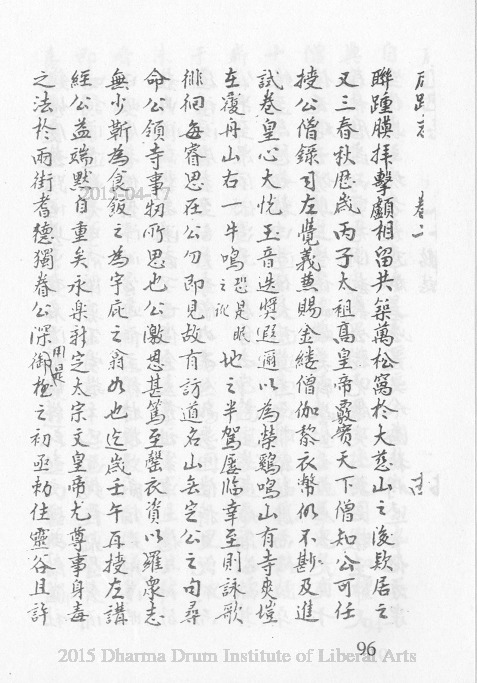 卷二
聯踵膜拜擊顱相留共築萬松窩於大慈山之後欵居之
又三春秋歷歲丙子太祖高皇帝覈實天下僧知公可任
授公僧錄司左覺義兼賜金縷僧伽黎衣幣仍不尠及進
試卷皇心大悅玉音迭奬遐邇以為榮鷄鳴山有寺爽塏
在覆舟山右一牛鳴之恐是眼訛地之半駕屢臨幸至則詠歌
徘徊每睿思在公勿即見故有訪道名山去定公之句尋
命公領寺事物所思也公激恩甚篤至罄衣資以羅衆志
無少靳為食飯之為宇庇之翕如也迄歲壬午再授左講
經公益端默自重矣永樂新定太宗文皇帝尤尊事身毒
之法於兩街耆德獨眷公深用是御極之初亟勅住靈谷且許
96
2015 Dharma Drum Institute of Liberal Arts